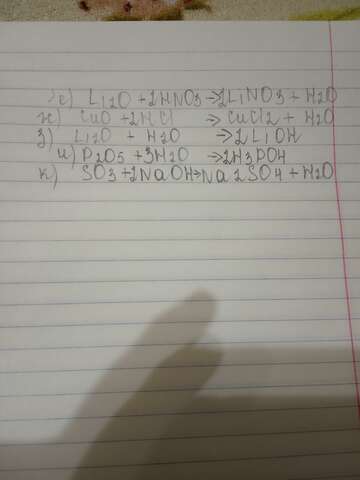 е) Li2O + 2HNO3 → 2LiNO3 + H2O
ж) CuO + 2HCl → CuCl2 + H2O
з) Li2O + H2O → 2LiOH
и) P2O5 + 3H2O → 2H3PO4
к) SO3 + 2NaOH → Na2SO4 + H2O